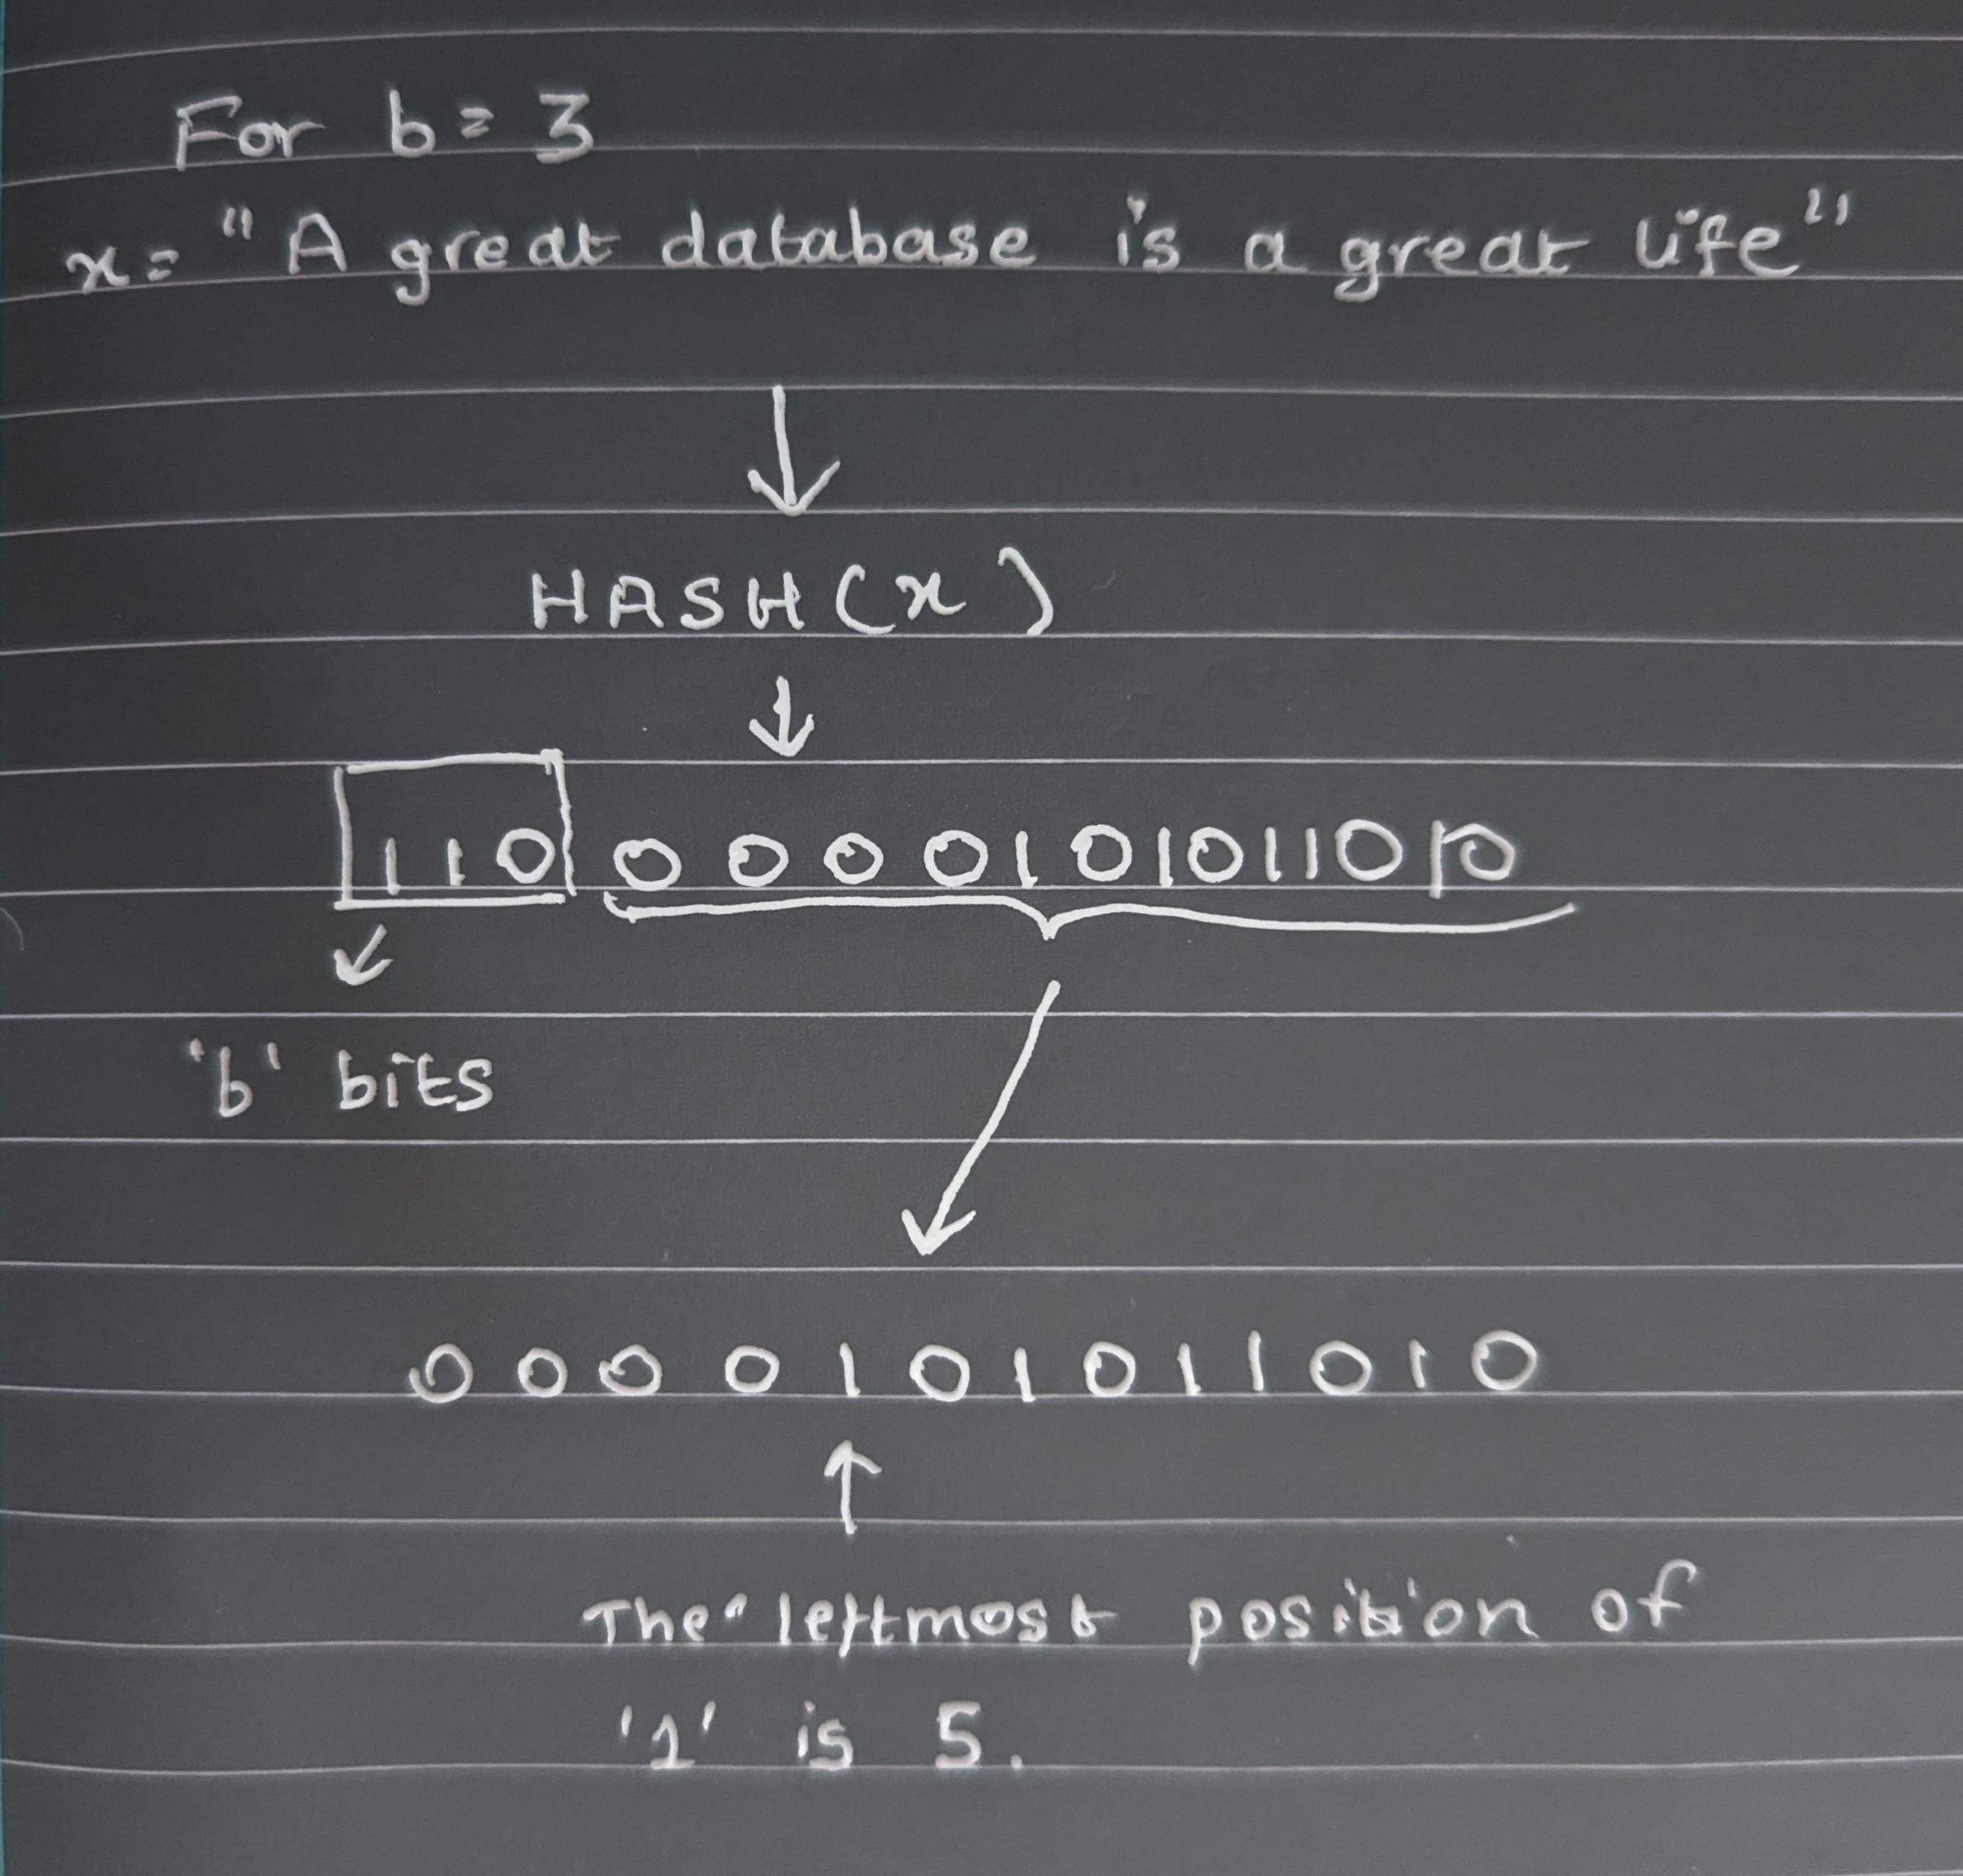 For b = 3
x = "A great database is a great life"
HASH(x)
110 0000101011010
'b' bits
0000101011010
The leftmost position of
'1' is 5.